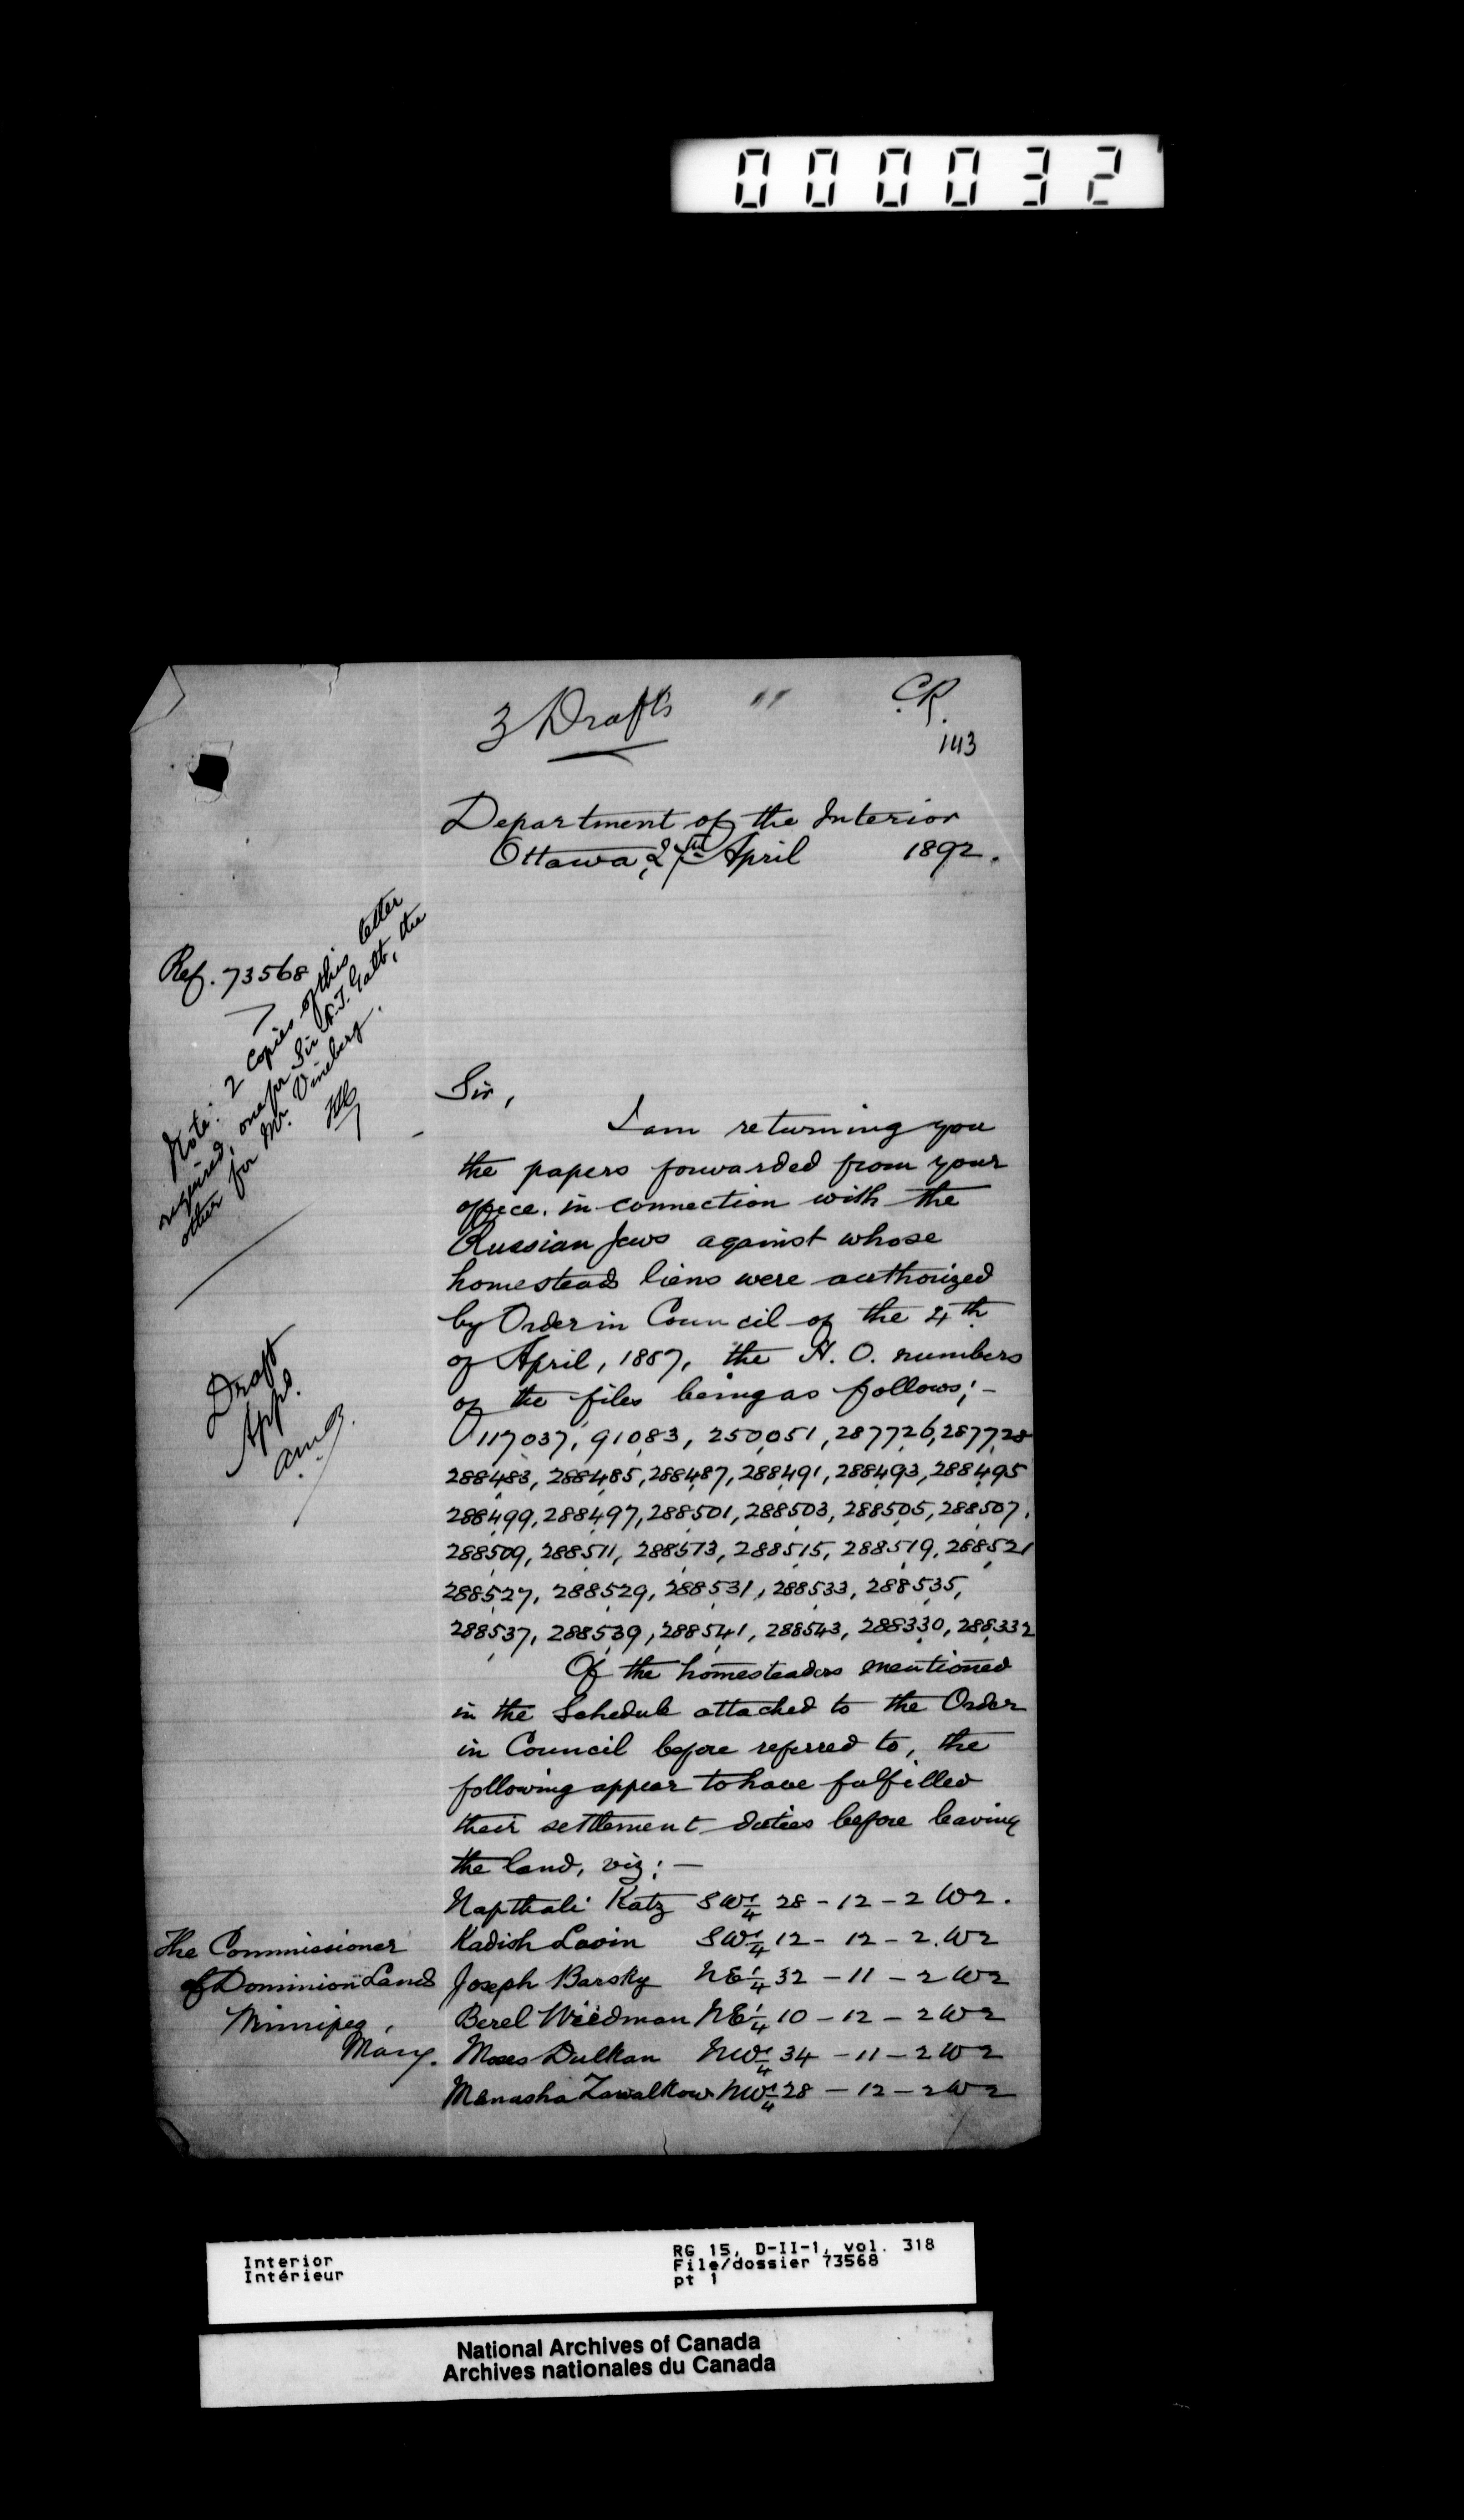 000032
3 Drafts
C.R.
143
Department of the Interior
Ottawa, 27th April 1892.
Ref. 73568
Note: 2 copies of this letter
required, one for Sir A.T. Galt, the
other for Mr. Vineberg.
Draft
App'd.
A.M.B.
Sir,
I am returning you
the papers forwarded from your
office, in connection with the
Russian Jews against whose
homesteads liens were authorized
by Order in Council of the 4th
of April, 1887, the H. O. numbers
of the files being as follows; -
117037, 91083, 250051, 287726, 287728
288483, 288485, 288487, 288491, 288493, 288495
288499, 288497, 288501, 288503, 288505, 288507,
288509, 288511, 288513, 288515, 288519, 288521
288527, 288529, 288531, 288533, 288535,
288537, 288539, 288541, 288543, 288330, 288332
Of the homesteaders mentioned
in the Schedule attached to the Order
in Council before referred to, the
following appear to have fulfilled
their settlement duties before leaving
the land, viz; -
Napthali Katz SW 1/4 28 - 12 - 2 W2.
Kadish Lavin SW 1/4 12 - 12 - 2. W2
Joseph Barsky NE 1/4 32 - 11 - 2 W2
Berel Wiedman NE 1/4 10 - 12 - 2 W2
Moses Dulkan NW 1/4 34 - 11 - 2 W2
Manasha Zawalkow NW 1/4 28 - 12 - 2 W2
The Commissioner
of Dominion Lands
Winnipeg,
Man.
Interior
Intérieur
RG 15, D-II-1, vol. 318
File/dossier 73568
pt 1
National Archives of Canada
Archives nationales du Canada